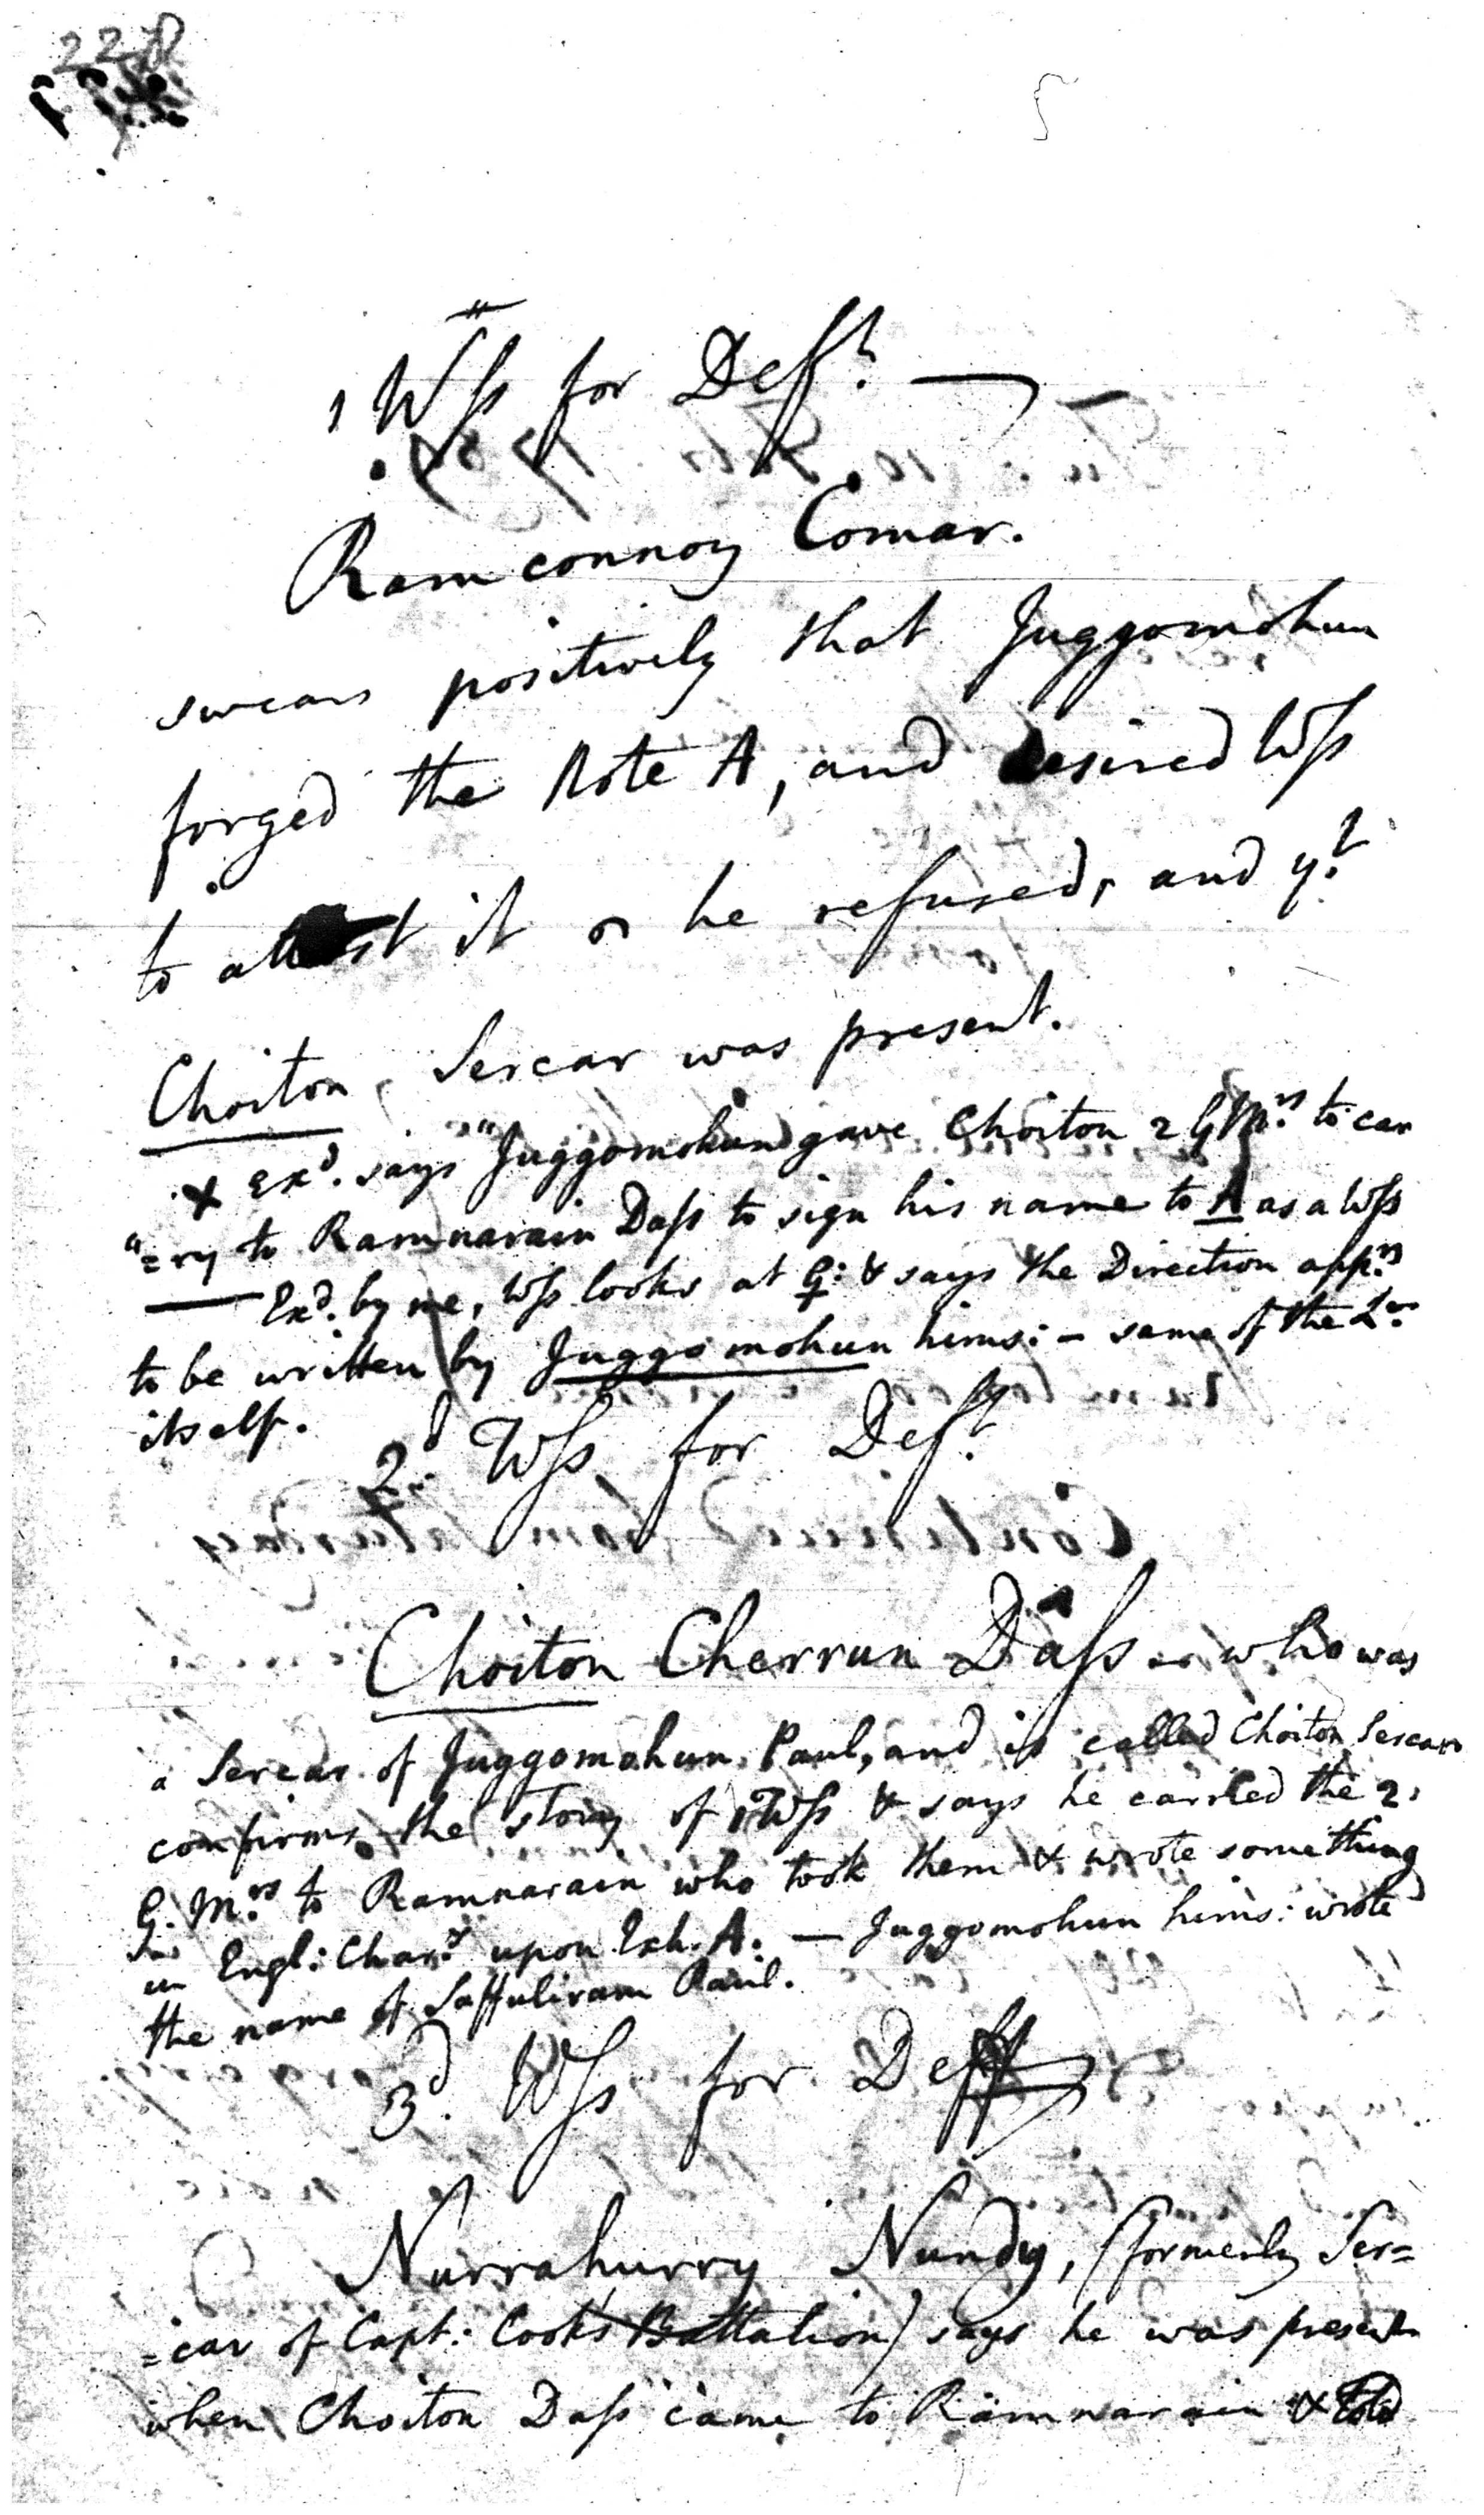 1 Wss for Deft.
Ramconnoy Comar.
swears positively that Juggomohun
forged the Note A, and desired Wss
to attest it he refused, and yt.
Choiton Sercar was present.
x exd. says "Juggomohun gave Choiton 2 G Mrs. to car
"=ry to Ramnarain Dass to sign his name to A as a Wss
— Exd. by me, Wss looks at G: & says the Direction apprs.
to be written by Juggomohun hims: – same of the Lr.
itself.
2d. Wss for Deft.
Choiton Cherrun Dass who was
a Sercar of Juggomohun Paul, and is called Choiton Sercar
confirms the story of 1 Wss & says he carried the 2
G. Mrs. to Ramnarain who took them & wrote something
in Engl: Chars. upon Exh. A. — Juggomohun hims: wrote
the name of Saffuliram Paul.
3d. Wss for Deft
Nurrahurry Nundy, (formerly Ser=
=car of Capt: Cook's Battalion) says he was present
when Choiton Dass came to Ramnarain & told